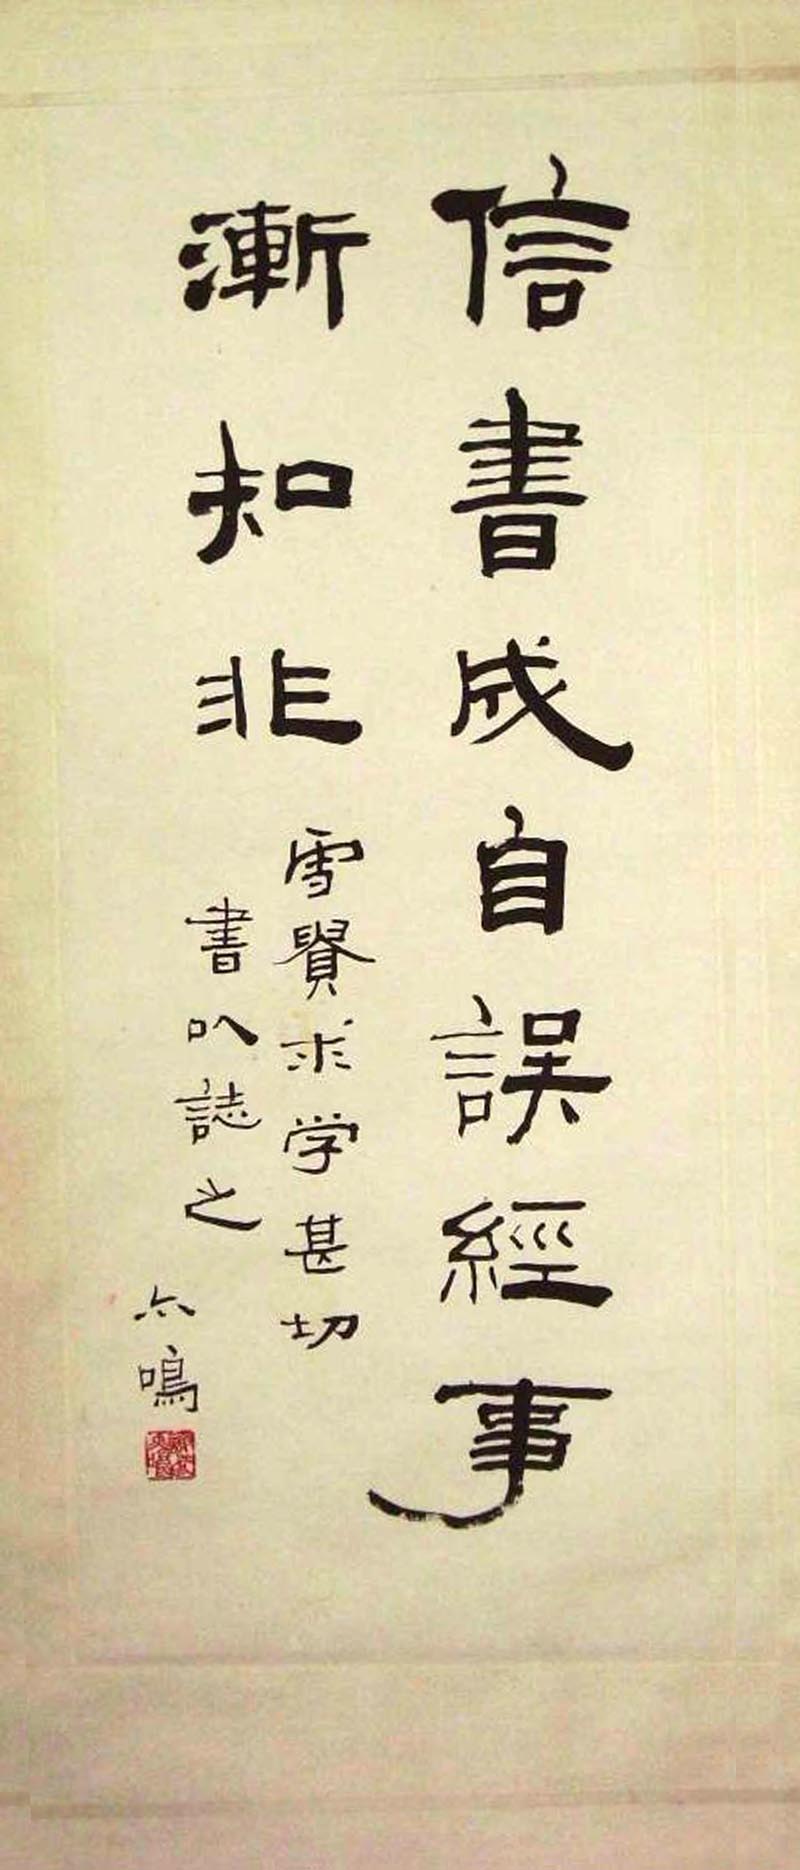 信書成自誤經事
漸知非
雪求学甚切
書㕥誌之
六鳴